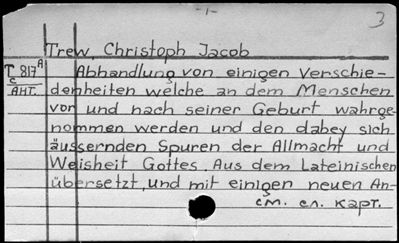 -1-
3
Trew, Christoph Jacob
T 817ᴬ Abhandlung von einigen Verschie-
c denheiten welche an dem Menschen
АНТ. vor und nach seiner Geburt wahrge-
nommen werden und den dabey sich
äussernden Spuren der Allmacht und
Weisheit Gottes. Aus dem Lateinischen
übersetzt, und mit einigen neuen An-
см. сл. карт.